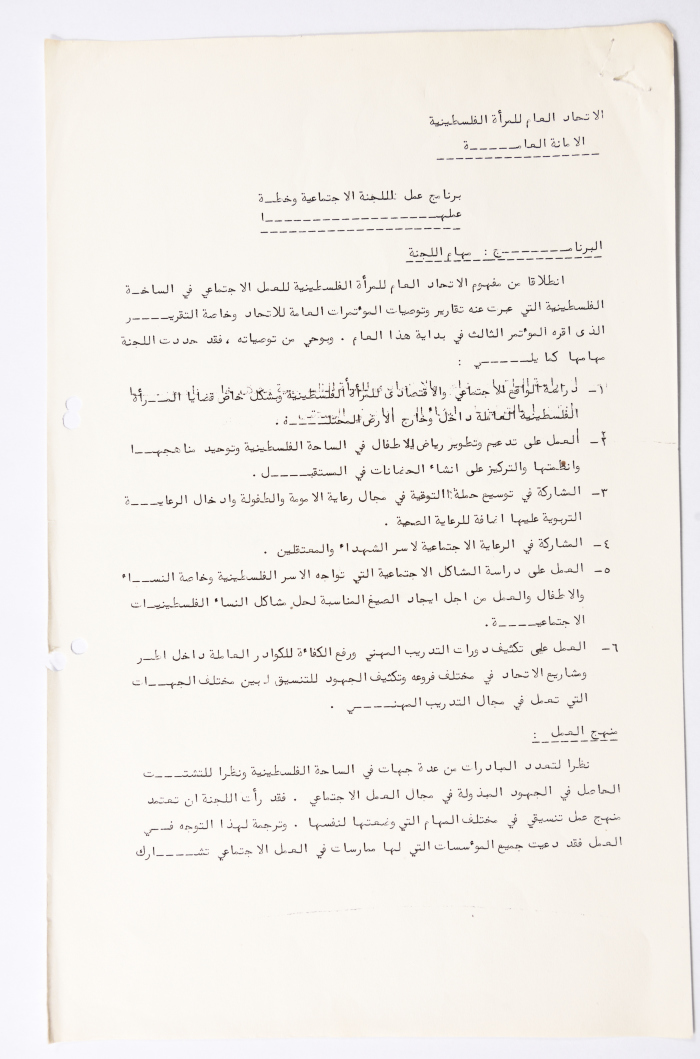 الاتحاد العام للمرأة الفلسطينية
الامانة العامــــــة
برنامج عمل اللجنة الاجتماعية وخطــة
عملهــــــــــــــــــا
البرنامـــــــج : مهام اللجنة
انطلاقا من مفهوم الاتحاد العام للمرأة الفلسطينية للعمل الاجتماعي في الساحـة
الفلسطينية التي عبرت عنه تقارير وتوصيات المؤتمرات العامة للاتحاد وخاصة التقريـــــر
الذى اقره المؤتمر الثالث في بداية هذا العام . وبوحي من توصياته ، فقد حددت اللجنة
مهامها كما يلـــــــي :
١- دراسة الواقع الاجتماعي والاقتصادى للمرأة الفلسطينية وبشكل خاص قضايا المــرأة
الفلسطينية العاملة داخل وخارج الأرض المحتلــــــة .
٢- العمل على تدعيم وتطوير رياض الاطفال في الساحة الفلسطينية وتوحيد مناهجهــا
وانظمتها والتركيز على انشاء الحضانات في المستقبـــــل .
٣- الشاركة في توسيع حملة التوقية في مجال رعاية الامومة والطفولة وادخال الرعايـــة
التربوية عليها اضافة للرعاية الصحية .
٤- المشاركة في الرعاية الاجتماعية لاسر الشهداء والمعتقلين .
٥- العمل على دراسة المشاكل الاجتماعية التي تواجه الاسر الفلسطينية وخاصة النســاء
والاطفال والعمل من اجل ايجاد الصيغ المناسبة لحل مشاكل النساء الفلسطينيــات
الاجتماعيـــــة .
٦- العمل على تكثيف دورات التدريب المهني ورفع الكفاءة للكوادر العاملة داخل اطــر
ومشاريع الاتحاد في مختلف فروعه وتكثيف الجهود للتنسيق بين مختلف الجهـــات
التي تعمل في مجال التدريب المهنـــــي .
منهج العمل :
نظرا لتعدد المبادرات من عدة جهات في الساحة الفلسطينية ونظرا للتشتــــت
الحاصل في الجهود المبذولة في مجال العمل الاجتماعي . فقد رأت اللجنة ان تعتمد
منهج عمل تنسيقي في مختلف المهام التي وضعتها لنفسها . وترجمة لهذا التوجه فـــي
العمل فقد دعيت جميع المؤسسات التي لها ممارسات في العمل الاجتماعي تشــــــارك